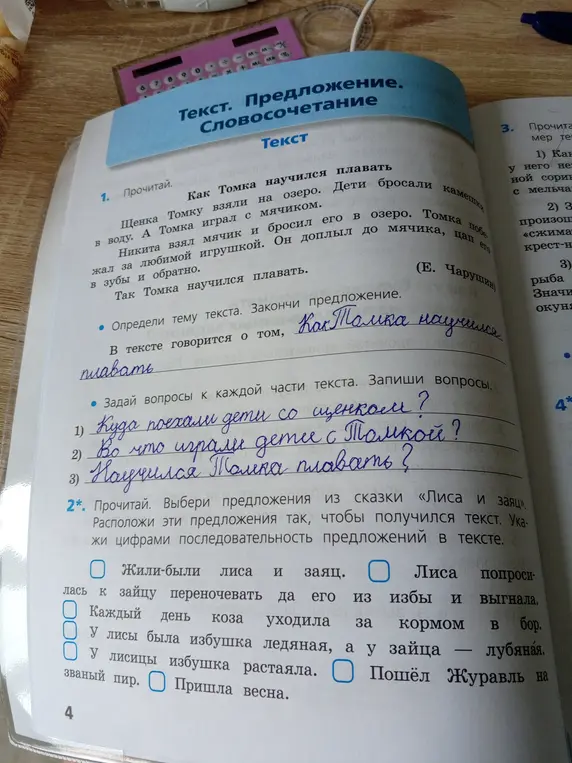 Текст. Предложение.
Словосочетание
Текст
1. Прочитай.
Как Томка научился плавать
Щенка Томку взяли на озеро. Дети бросали камешки
в воду. А Томка играл с мячиком.
Никита взял мячик и бросил его в озеро. Томка побе-
жал за любимой игрушкой. Он доплыл до мячика, цап его
в зубы и обратно.
Так Томка научился плавать.
(Е. Чарушин)
• Определи тему текста. Закончи предложение.
В тексте говорится о том, Как Томка научился
плавать
• Задай вопросы к каждой части текста. Запиши вопросы.
1) Куда поехали дети со щенком?
2) Во что играли дети с Томкой?
3) Научился Томка плавать?
2*. Прочитай. Выбери предложения из сказки «Лиса и заяц».
Расположи эти предложения так, чтобы получился текст. Ука-
жи цифрами последовательность предложений в тексте.
Жили-были лиса и заяц. Лиса попроси-
лась к зайцу переночевать да его из избы и выгнала.
Каждый день коза уходила за кормом в бор.
У лисы была избушка ледяная, а у зайца — лубяна́я.
У лисицы избушка растаяла. Пошёл Журавль на
званый пир. Пришла весна.
4
3. Прочита
мер те
1) Ка
у него не
ной сори
с мельча
2) З
произош
«сжима
крест-н
3)
рыба
Значи
окун
4*